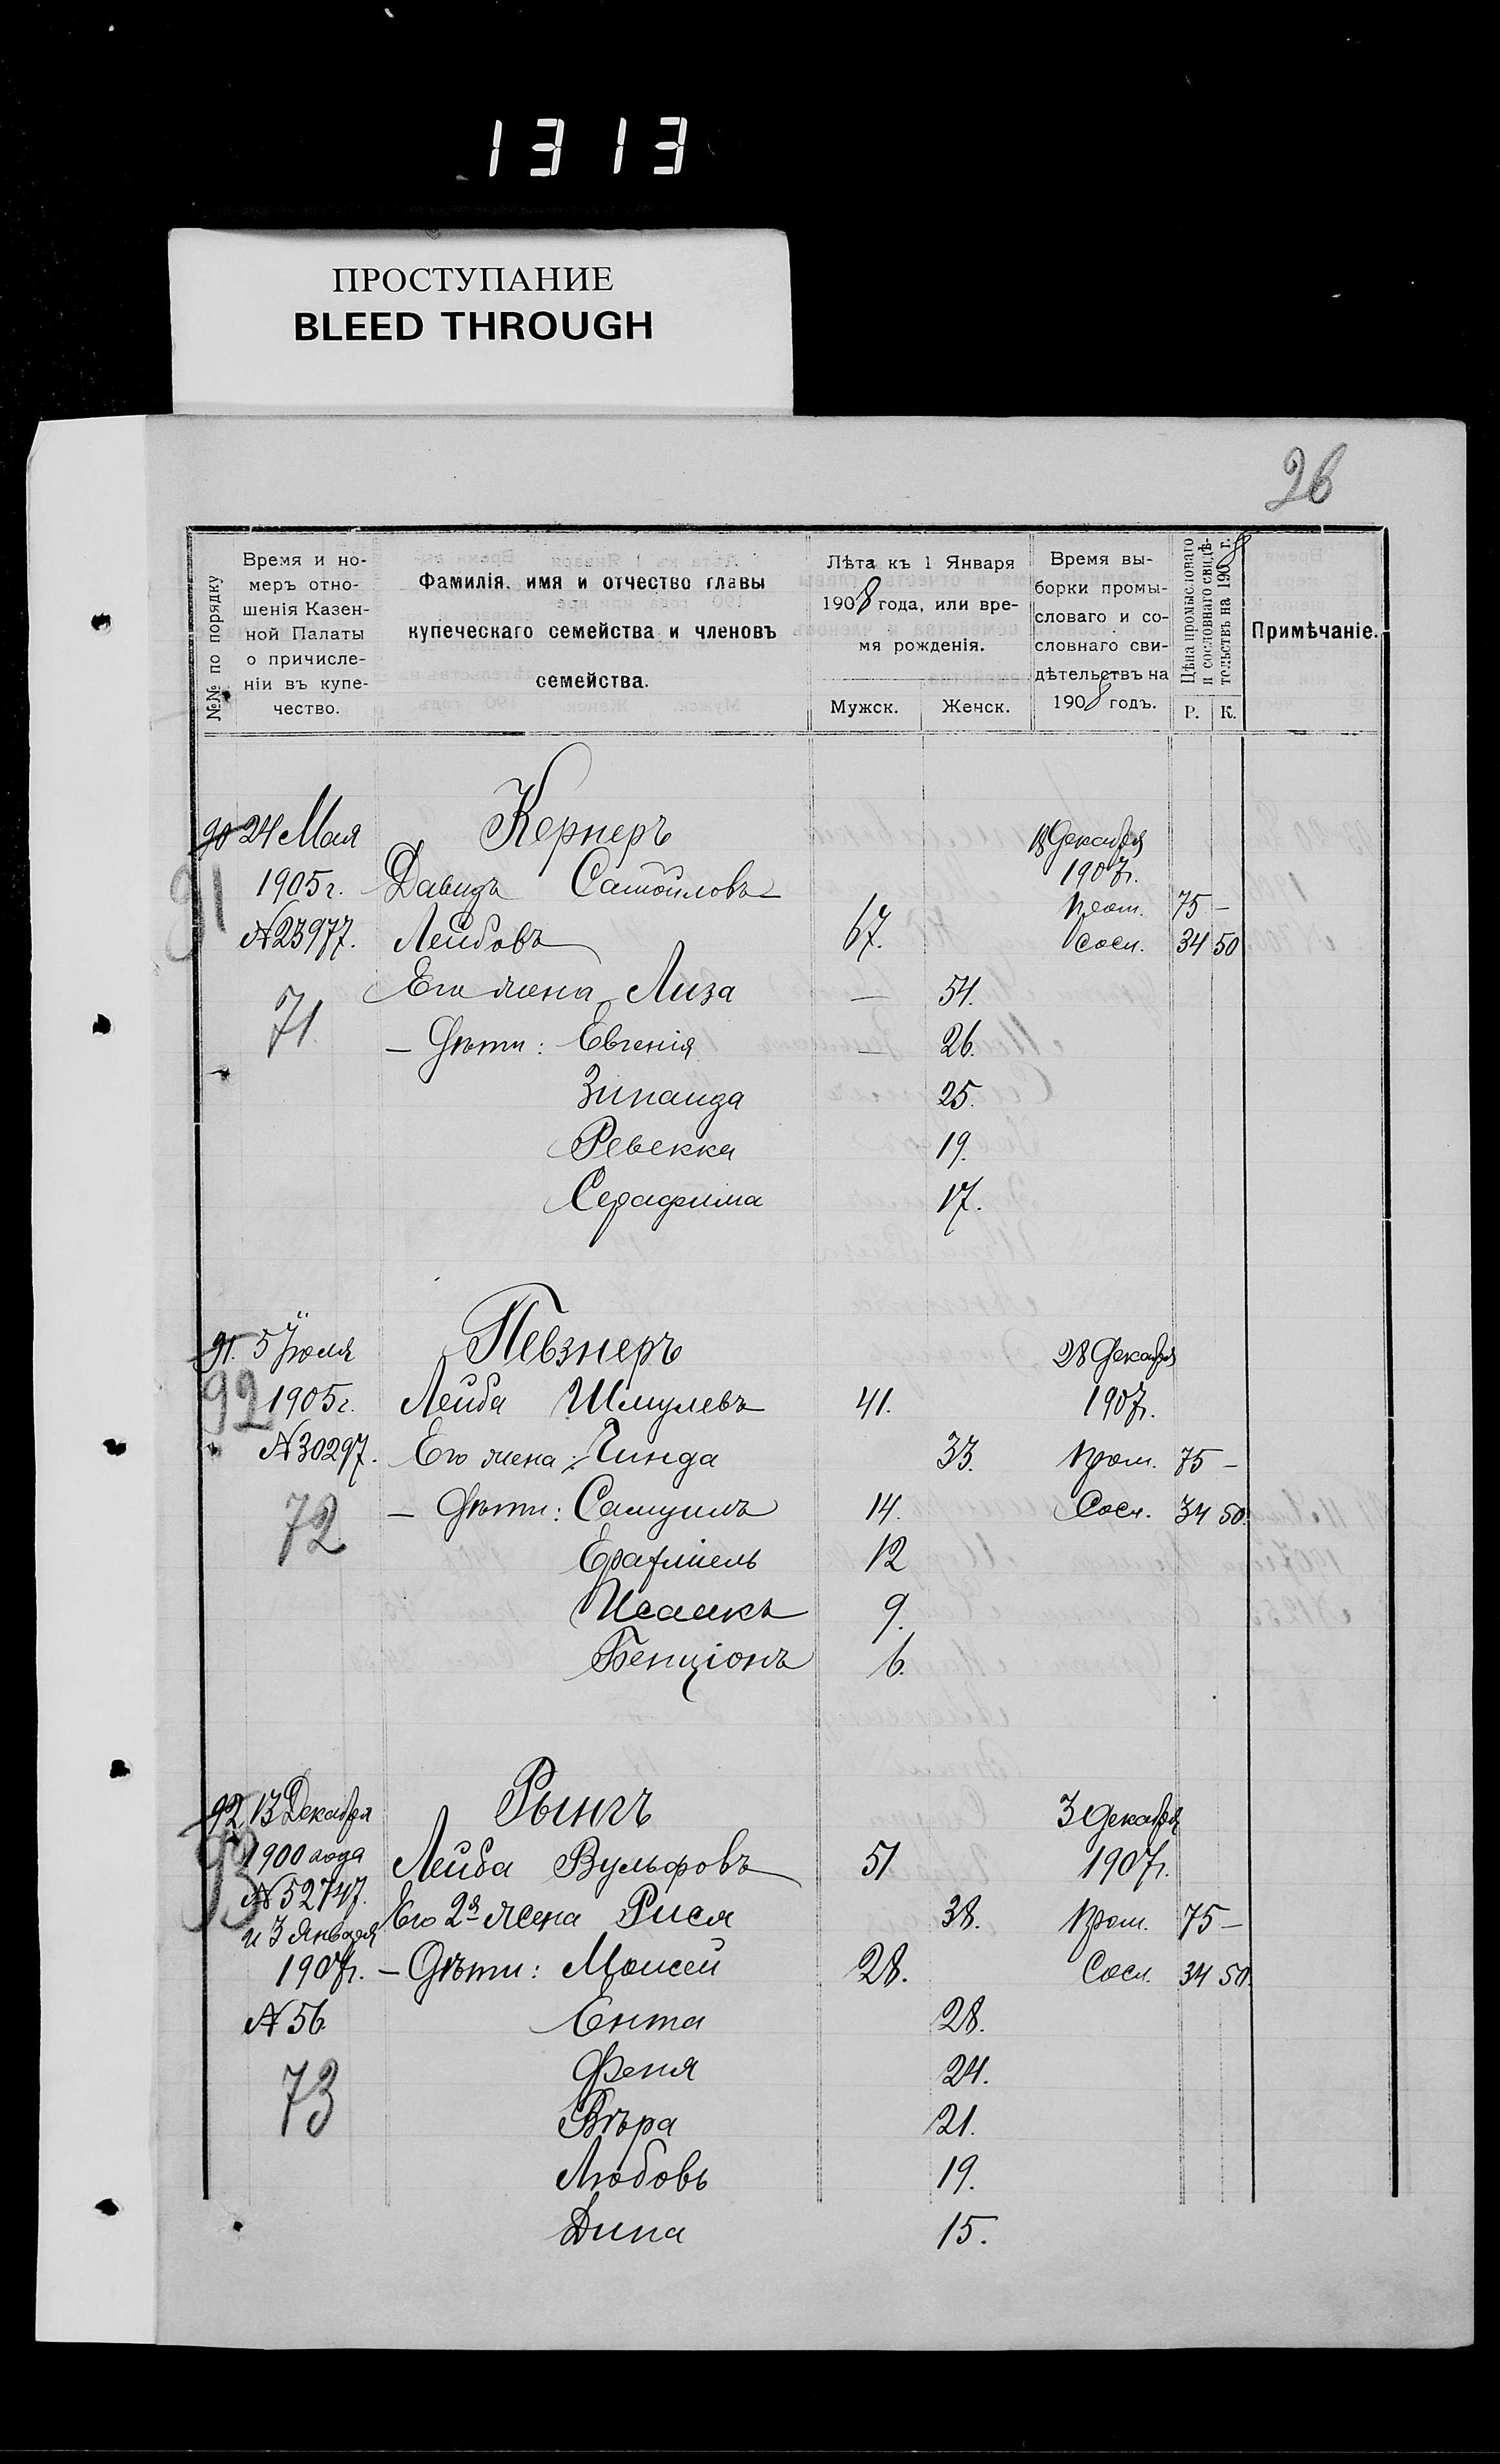 1313
ПРОСТУПАНИЕ
BLEED THROUGH
26
№№ по порядку
Время и но-
меръ отно-
шенія Казен-
ной Палаты
о причисле-
ніи въ купе-
чество.
Фамилія, имя и отчество главы
купеческаго семейства и членовъ
семейства.
Лѣта къ 1 Января
1908 года, или вре-
мя рожденія.
Мужск. Женск.
Время вы-
борки промы-
словаго и со-
словнаго сви-
дѣтельствъ на
1908 годъ.
Цѣна промысловаго
и сословнаго свидѣ-
тельствъ на 1908 г.
Р. К.
Примѣчаніе.
90 24 Мая Кернеръ 18 Декабря
91 1905 г. Давидъ Самойловъ 1907 г.
№ 23977. Лейбовъ 67. Пром. 75 —
Сосл. 34 50
71. Его жена Лиза — 54.
— Дѣти: Евгенія — 26.
Зинаида 25.
Ревекка 19.
Серафима 17.
91. 5 Іюля Певзнеръ 28 Декабря
92 1905 г. Лейба Шмулевъ 41. 1907 г.
№ 30297. Его жена: Гинда 33. Пром. 75 —
72 — Дѣти: Самуилъ 14. Сосл. 34 50.
12
Исаакъ 9.
Бенціонъ 6.
92 13 Декабря Рынгъ 3 Декабря
93 1900 года Лейба Вульфовъ 51 1907 г.
№ 52747. Его 2я жена Рися 38. Пром. 75 —
и 3 Января
1907 г. — Дѣти: Моисей 28. Сосл. 34 50.
№ 56. Ента 28.
73 Феня 24.
Вѣра 21.
Любовь 19.
Дина 15.